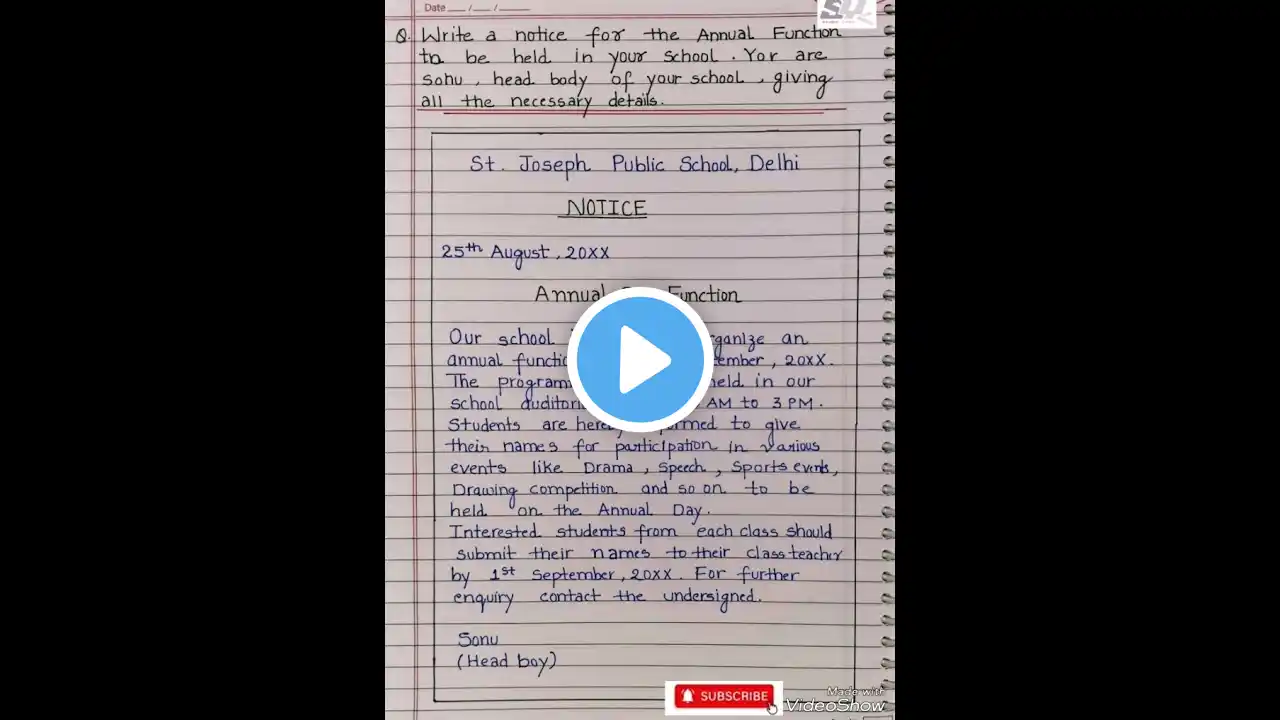 Date ___ /___ / _____
Q. Write a notice for the Annual Function
to be held in your school. Yor are
sonu, head body of your school, giving
all the necessary details.
St. Joseph Public School, Delhi
NOTICE
25th August, 20XX
Annual Function
Our school organize an
annual 20XX.
The held in our
school AM to 3 PM.
Students are to give
their names for participation in various
events like Drama, Speech, Sports events,
Drawing competition and so on to be
held on the Annual Day.
Interested students from each class should
submit their names to their class teacher
by 1st September, 20XX. For further
enquiry contact the undersigned.
Sonu
(Head boy)
SUBSCRIBE
Made with
VideoShow